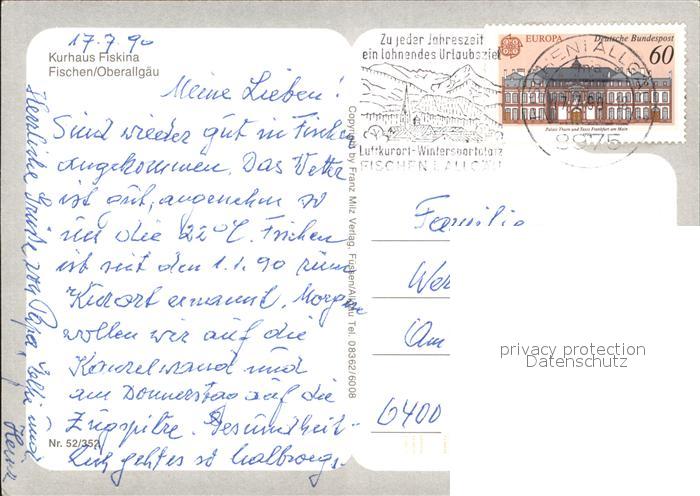 17.7.90
Kurhaus Fiskina
Fischen/Oberallgäu
Meine Lieben!
Sind wieder gut in Fischen
angekommen. Das Wetter
ist gut, angenehm so
um die 22°C. Fischen
ist seit den 1.1.90 zum
Kurort ernannt. Morgen
wollen wir auf die
Kanzelwand und
am Donnerstag auf die
Zugspitze. Gesundheit-
lich geht es so halbwegs.
Herzliche Grüße von Papa, und
Heinz
Nr. 52/352
Copyright by Franz Milz Verlag, Füssen/Allgäu Tel. 08362/6008
Zu jeder Jahreszeit
ein lohnendes Urlaubsziel
Luftkurort-Wintersportplatz
FISCHEN I. ALLGÄU
EUROPA Deutsche Bundespost
60
Palais Thurn und Taxis Frankfurt am Main
8975
Familie
Am
6400
privacy protection
Datenschutz